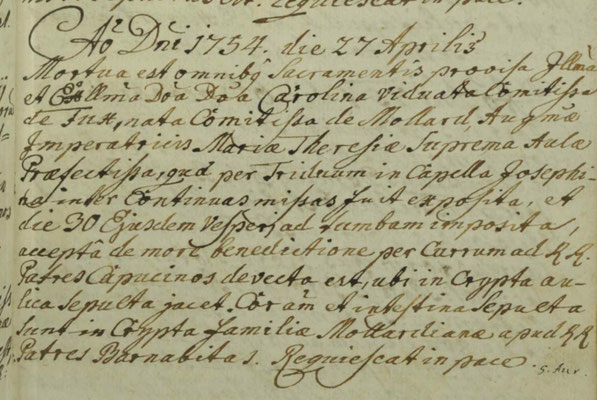 Requiescat in pace.
Aō Dnī 1754. die 27 Aprilis
Mortua est omnibq Sacramentis provisa Illmā
et Exllmā Dōa Dōa Carolina viduata Comitissa
de Fux, nata Comitissa de Mollard, Augmæ
Imperatricis Mariæ Theresiæ Suprema Aulæ
Præfectissa, quæ per Triduum in Capella Josephi-
na inter Continuas missas fuit exposita, et
die 30 Ejusdem Vesperi ad tumbam imposita,
acceptâ de more benedictione per Currum ad RR.
Patres Capucinos devecta est, ubi in Crypta au-
lica sepulta jacet. Cor añ et intestina Sepulta
sunt in Crypta familiæ Mollardianæ apud RR
Patres Barnabitas. Requiescat in pace